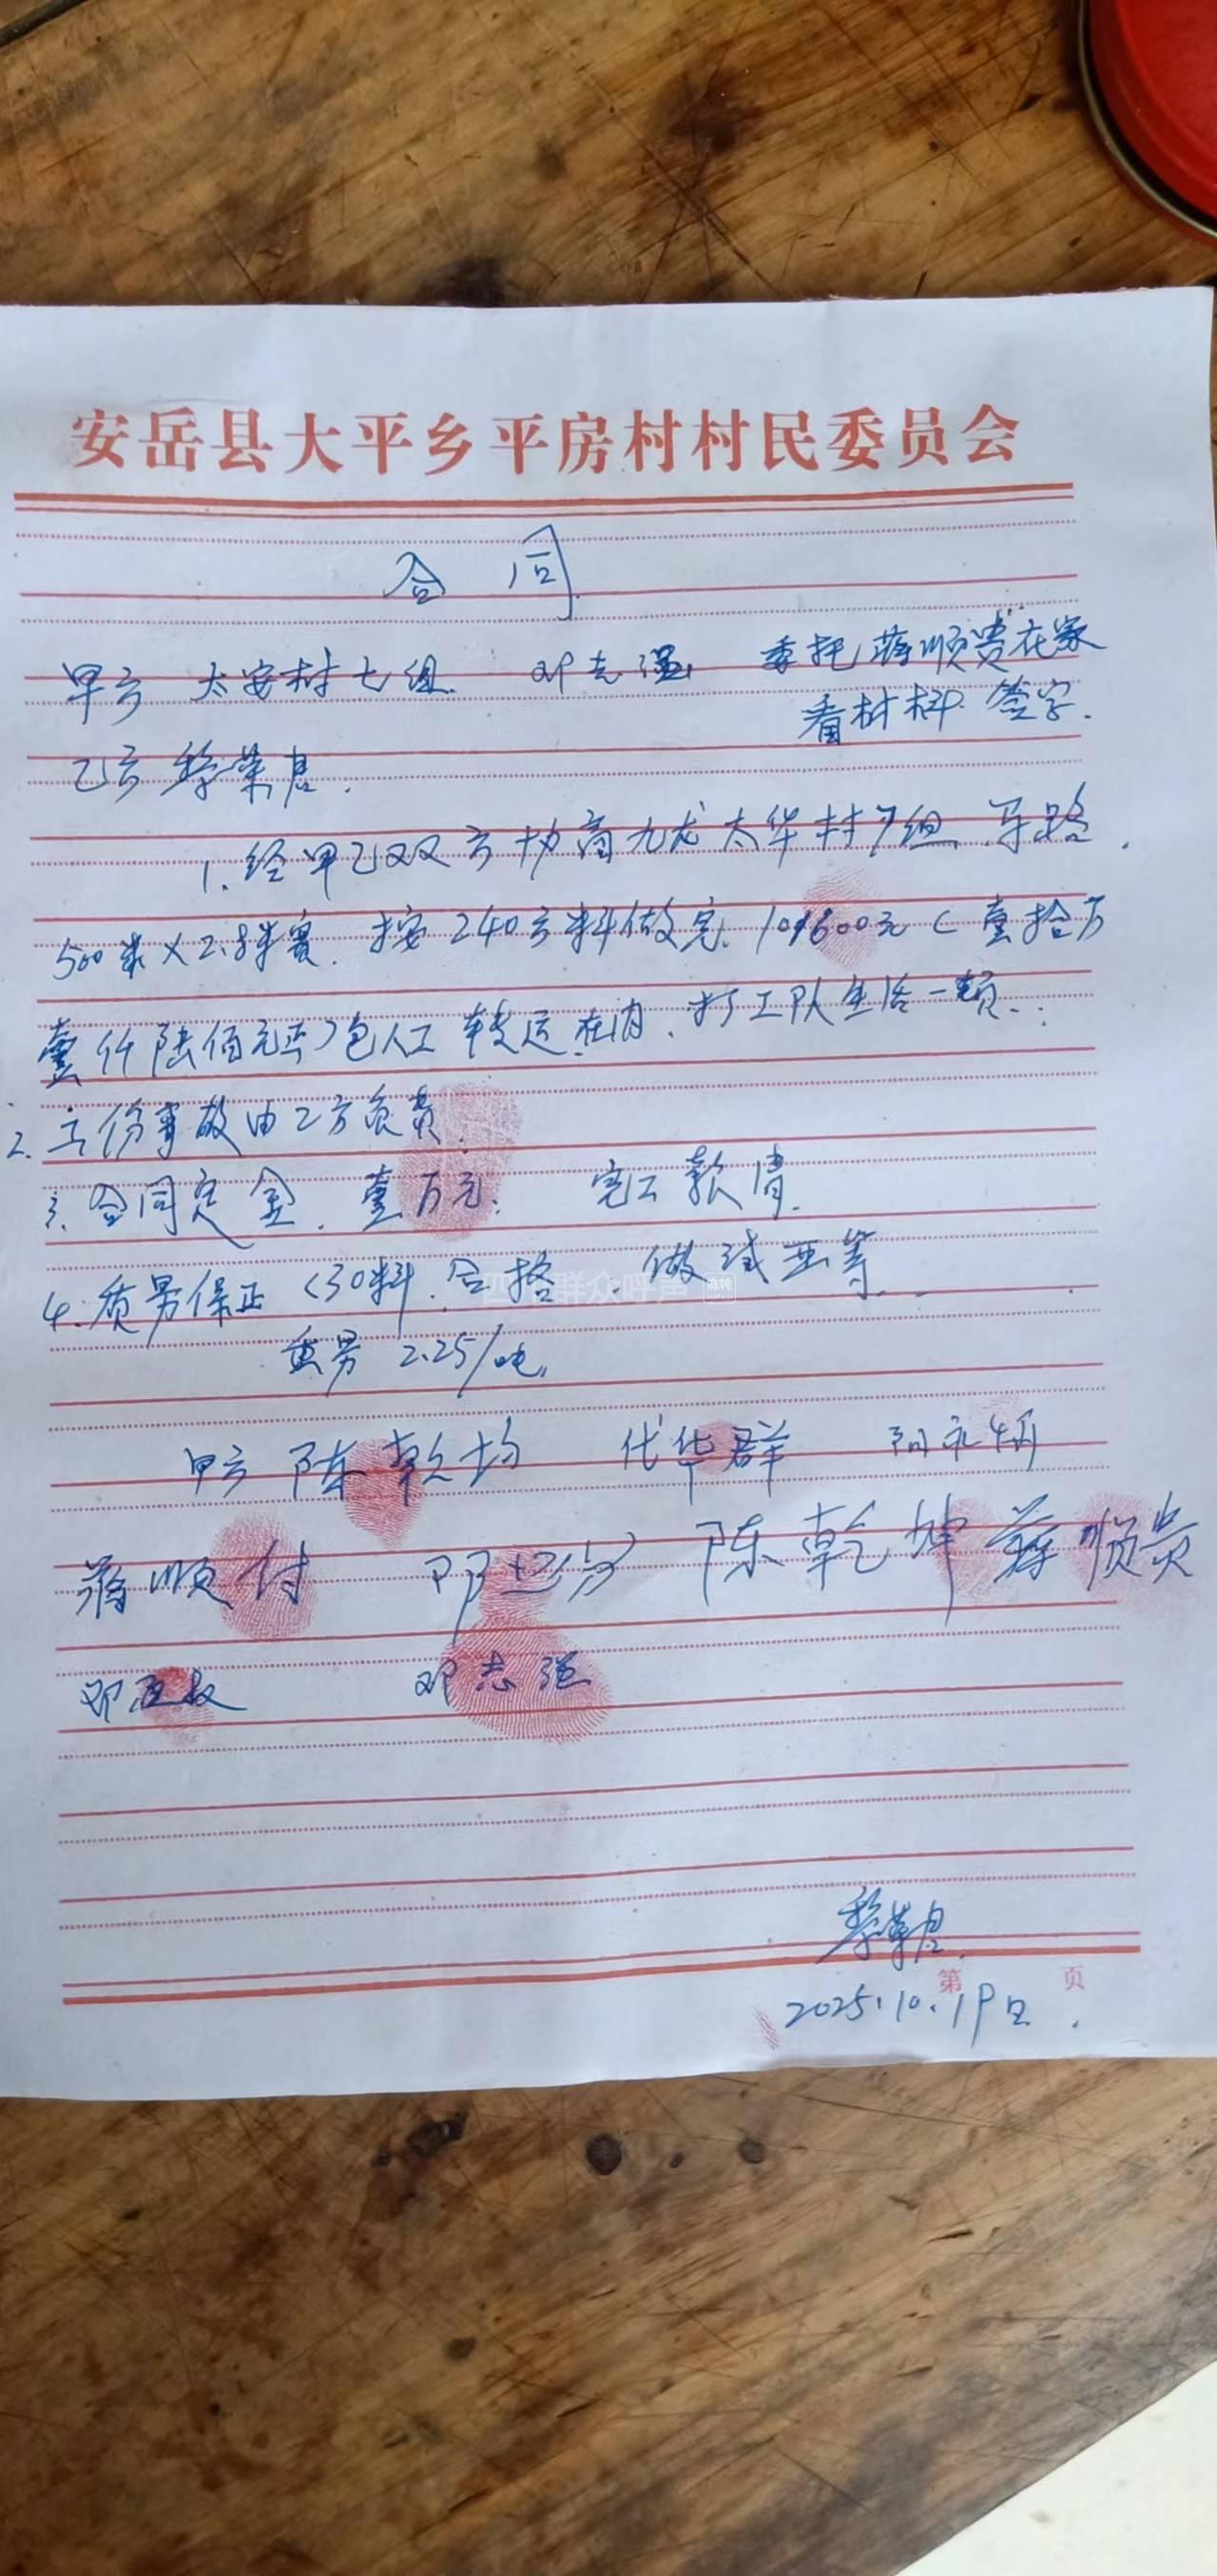 安岳县大平乡平房村村民委员会
合同
甲方 太安村七组 邓志强 委托蒋顺贵在家
看材料 签字.
乙方
1.经甲乙双方协商九龙太华村7组 马路.
500米×2.8米宽. 按240方料做完. 101600元(壹拾万
壹仟陆佰元正)包人工 转运在内. 打工队生活一顿.
2.工伤事故由乙方负责.
3.合同定金.壹万元. 完工款清.
4.质另保正 C30料.合格.做试西等.
四川群众呼声
重另 2.25/吨.
甲方 陈乾均 代华群
蒋顺付 陈乾坤 蒋顺贵
邓志强
第 页
2025.10.19日.